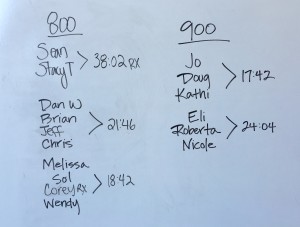 800
Sean
Stacy T > 38:02 RX
Dan W
Brian
Jeff > 21:46
Chris
Melissa
Sol
Corey RX > 18:42
Wendy
900
Jo
Doug > 17:42
Kathi
Eli
Roberta > 24:04
Nicole